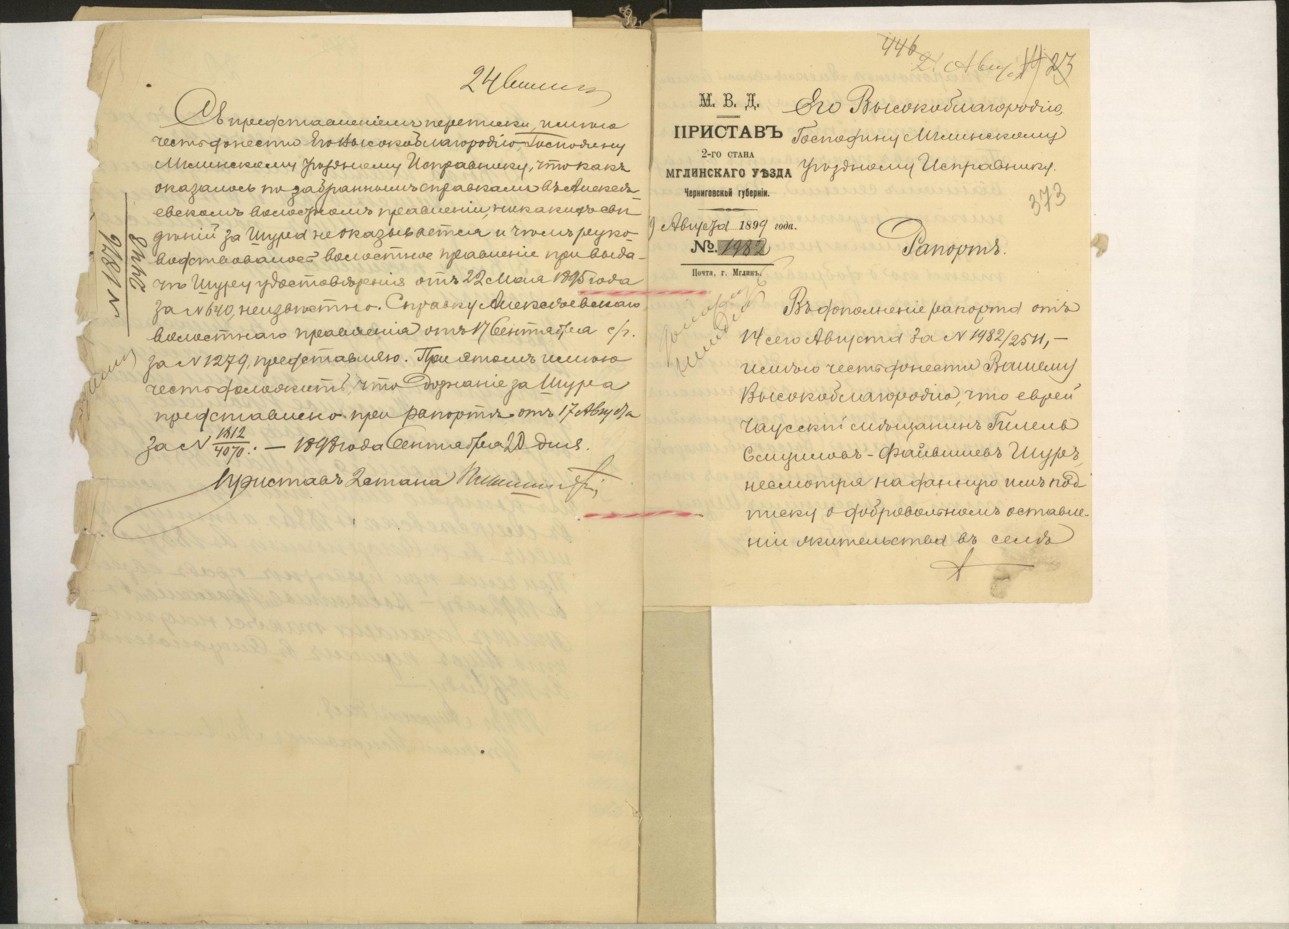 24 Сент
Съ представленіемъ переписки, имѣю
честь донести Его Высокоблагородію, Господину
Мглинскому Уѣздному Исправнику, что какъ
оказалось по забраннымъ справкамъ въ Алексѣ-
евскомъ волостномъ правленіи, никакихъ свѣ-
дѣній за Шура не оказывается и чѣмъ руко-
водствовалось волостное правленіе при выда-
чѣ Шуру удостовѣренія отъ 22 Мая 1895 года
за № 640, неизвѣстно. Справку Алексѣевскаго
волостнаго правленія отъ 17 Сентября с/г.
за № 1279, представляю. При этомъ имѣю
честь доложить, что дознаніе за Шура
представлено при рапортѣ отъ 17 Августа
за № 1812/4070. — 1898 года Сентября 20 дня.
Приставъ 2 стана
446
2. Авг.
373
М. В. Д.
ПРИСТАВЪ
2-го стана
МГЛИНСКАГО УѢЗДА
Черниговской губерніи.
9 Августа 1899 года.
№. 1982
Почта, г. Мглинъ.
Его Высокоблагородію,
Господину Мглинскому
Уѣздному Исправнику.
Рапортъ.
Въ дополненіе рапорта отъ
14 сего Августа за № 1982/2511, —
имѣю честь донести Вашему
Высокоблагородію, что еврей
Чаусскій мѣщанинъ
Шуръ,
несмотря на данную имъ под-
писку о добровольномъ оставле-
ніи жительства въ селѣ